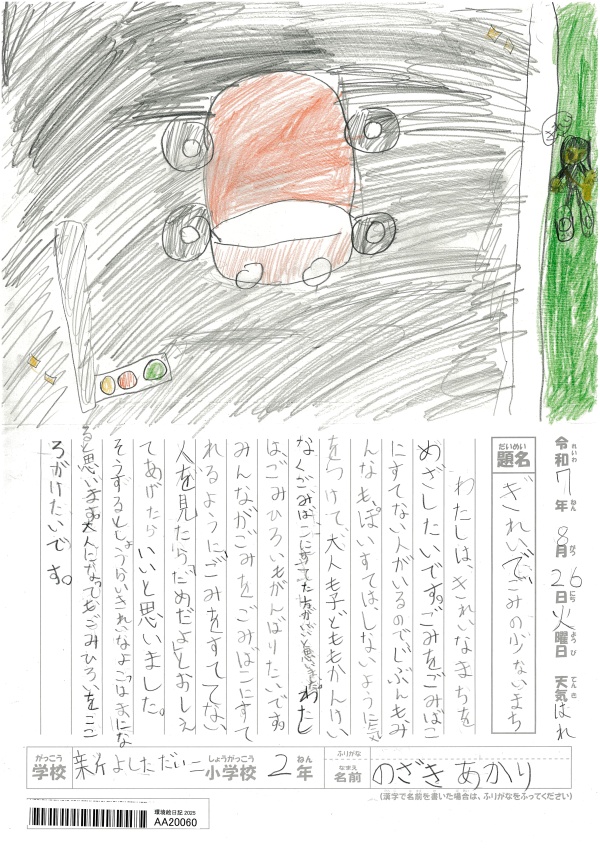 令和7年8月26日火曜日 天気はれ
れいわ ねん がつ にち ようび てんき
だいめい
題名 きれいでごみの少ないまち
わたしは、きれいなまちを
めざしたいです。ごみをごみばこ
にすてない人がいるのでじぶんもみ
んなも、ぽいすてはしないように気
をつけて、大人も子どももかんけい
なくごみばこにすてた方がいいと思いました。わたし
は、ごみひろいもがんばりたいです。
みんながごみをごみばこにすて
れるように、ごみをすててない
人を見たら「だめだよ」とおしえ
てあげたらいいと思いました。
そうするとしょうらいきれいなよこはまにな
ると思います。大人になってもごみひろいをここ
ろがけたいです。
がっこう
学校 新よしだだい二 しょうがっこう
小学校 2 ねん
年
ふりがな
なまえ
名前 のざき あかり
(漢字で名前を書いた場合は、ふりがなをふってください)
環境絵日記 2025
AA20060